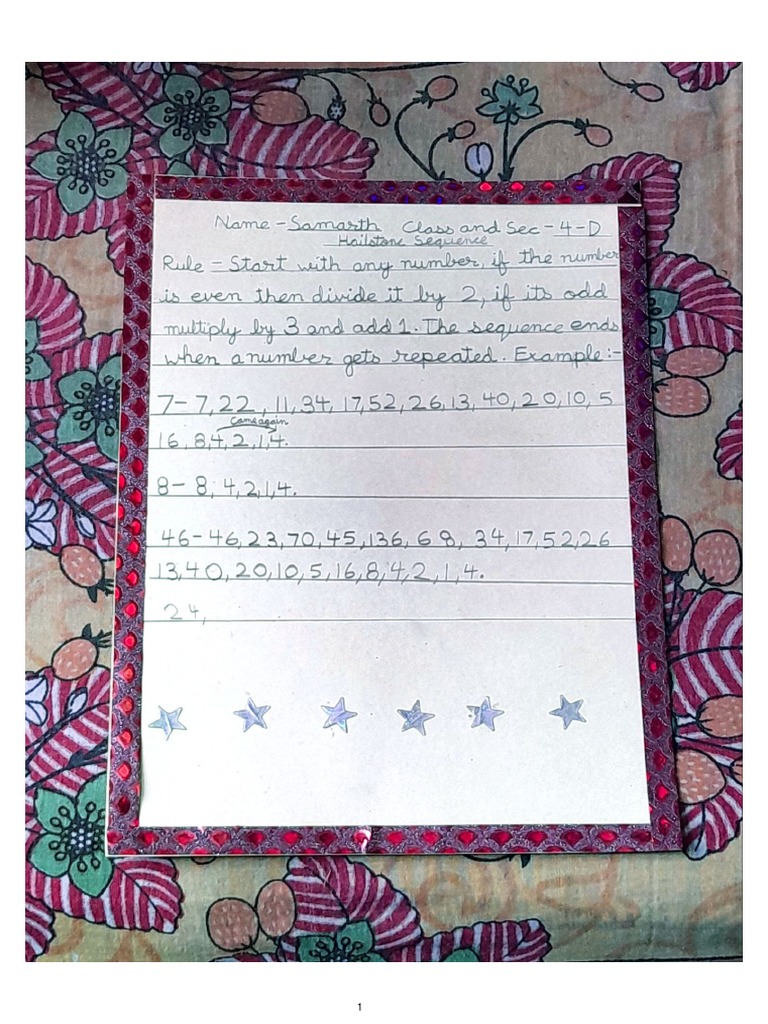 Name - Samarth Class and Sec - 4 - D
Hailstone Sequence
Rule - Start with any number, if the number
is even then divide it by 2, if its odd
multiply by 3 and add 1. The sequence ends
when a number gets repeated. Example :-
7 - 7, 22, 11, 34, 17, 52, 26, 13, 40, 20, 10, 5
Came again
16, 8, 4, 2, 1, 4.
8 - 8, 4, 2, 1, 4.
46 - 46, 23, 70, 45, 136, 68, 34, 17, 52, 26
13, 40, 20, 10, 5, 16, 8, 4, 2, 1, 4.
24,
1